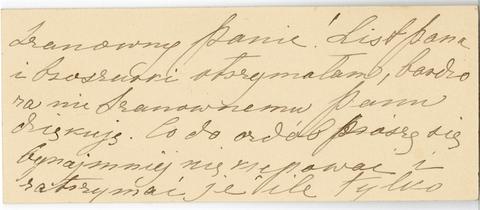 Szanowny Panie! List Pana
i broszurki otrzymałam, bardzo
za nie Szanownemu Panu
dziękuję. Co do ozdób proszę się
bynajmniej nie krępować i
zatrzymać je ile tylko